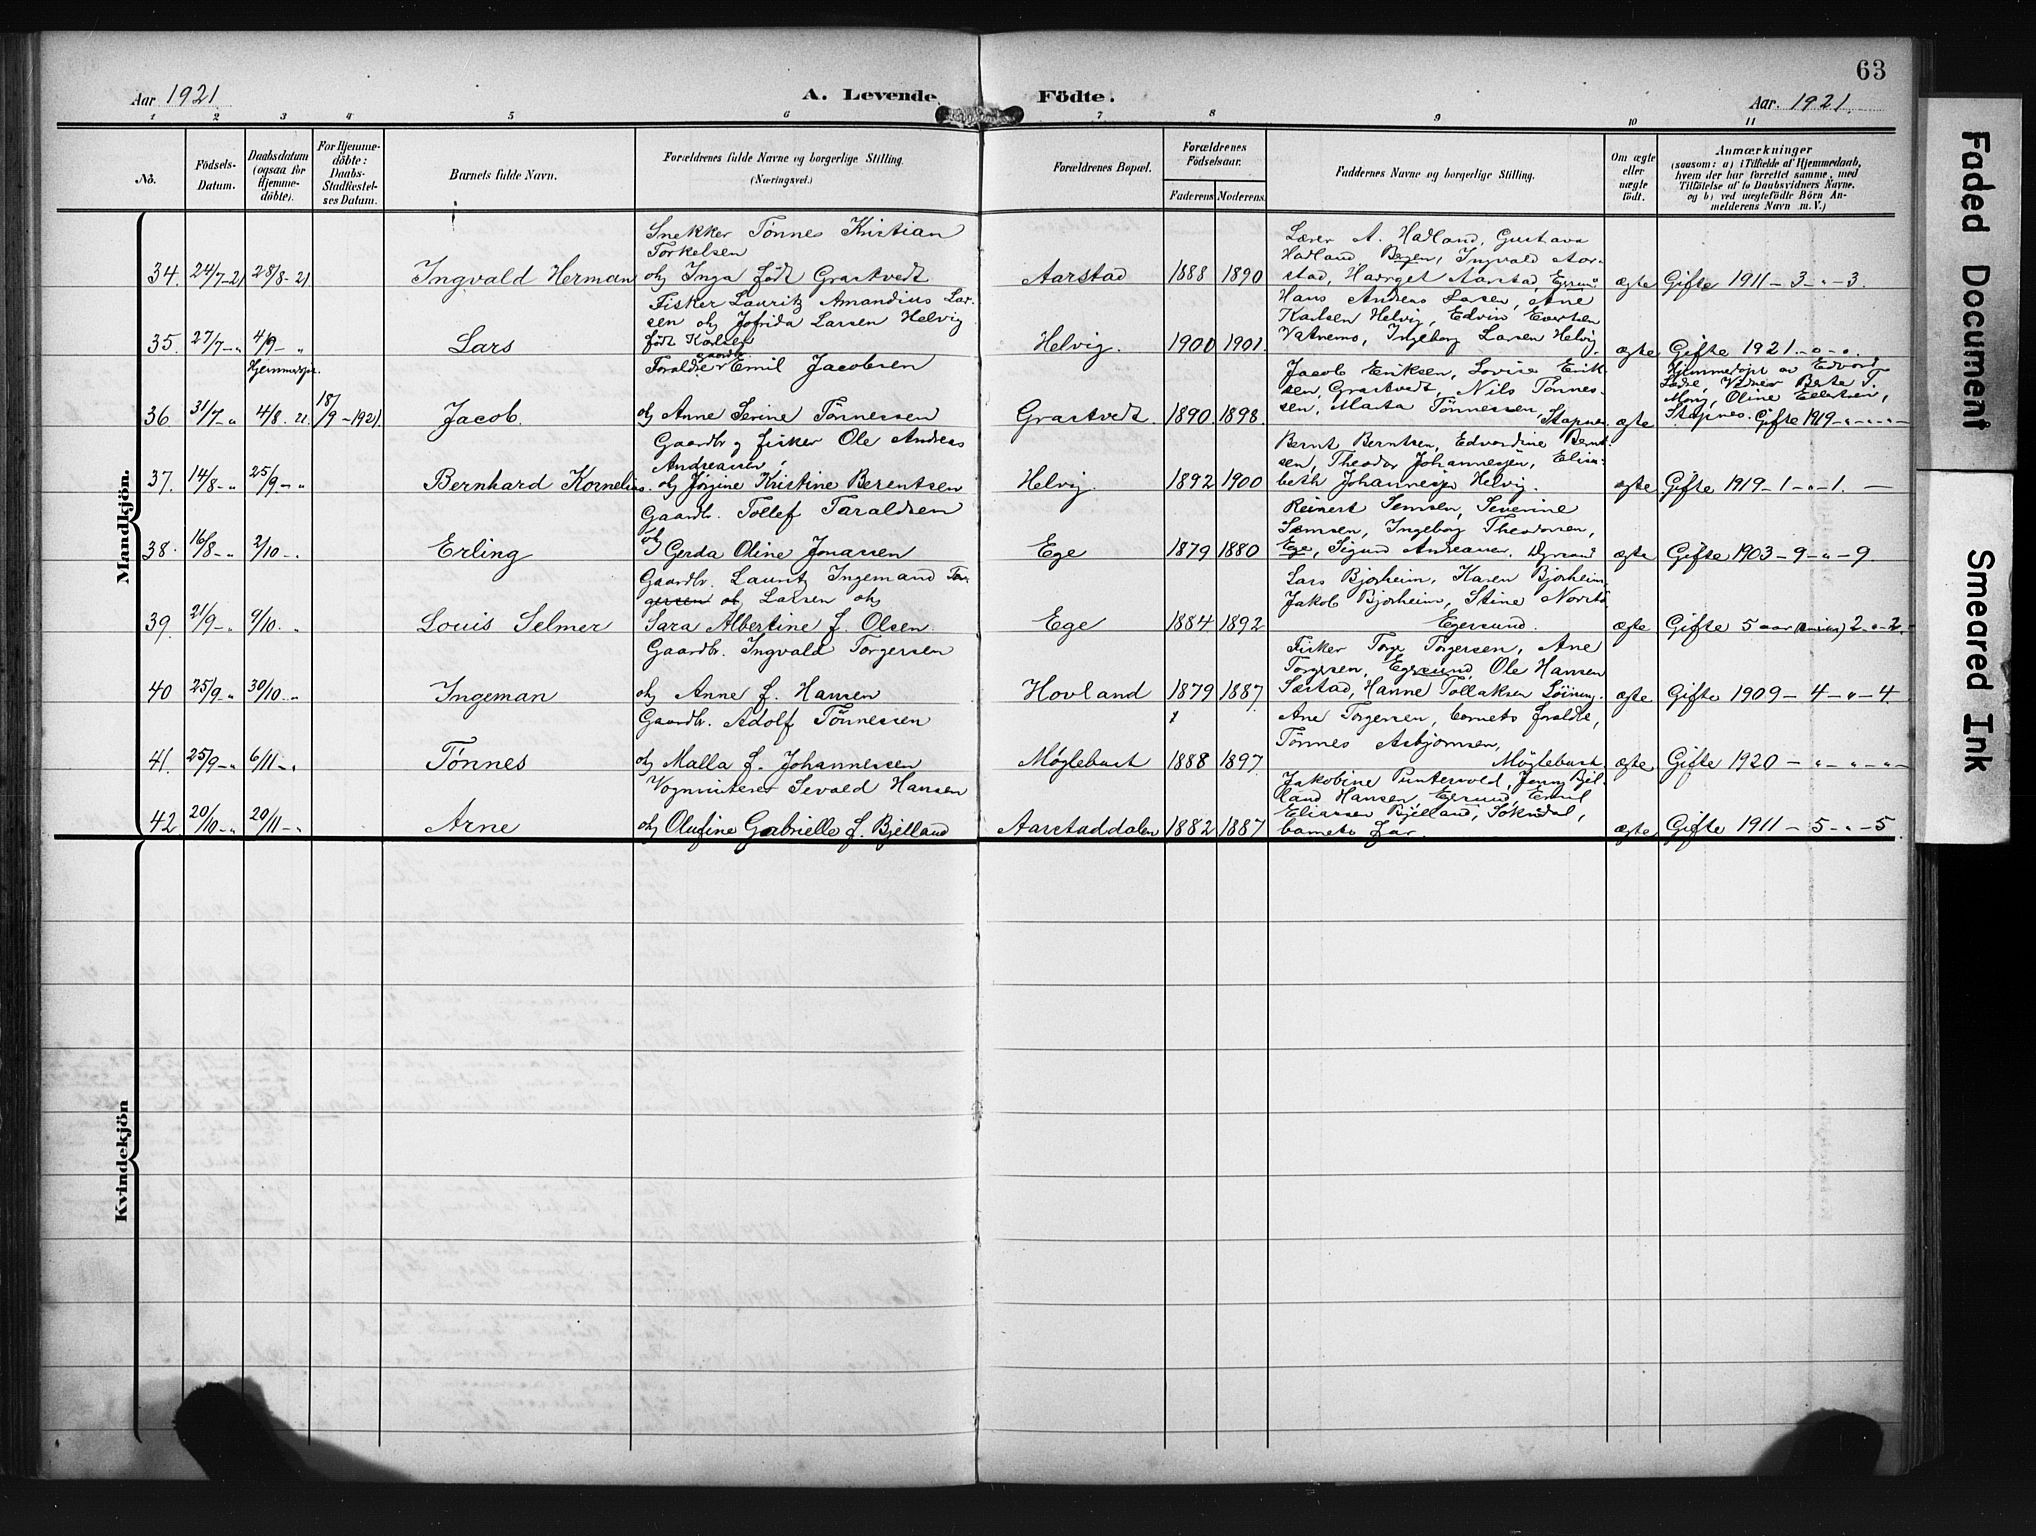 63
Aar 1921
A. Levende
Födte.
Aar. 1921.
1 2 3 4 5 6 7 8 9 10 11
No.
Födsels-
Datum.
Daabsdatum
(ogsaa for
Hjemme-
döbte).
For Hjemme-
döbte:
Daabs-
Stadfæstel-
ses Datum.
Barnets fulde Navn.
Forældrenes fulde Navne og borgerlige Stilling.
(Næringsvei.)
Forældrenes Bopæl.
Forældrenes
Födselsaar.
Faderens Moderens
Faddernes Navne og borgerlige Stilling.
Om ægte
eller
uægte
födt.
Anmærkninger
(saasom: a) i Tilfælde af Hjemmedaab,
hvem der har forrettet samme, med
Tilføielse af to Daabsvidners Navne,
og b) ved uægtefödte Börn An-
melderens Navn m. V.)
Mandkjön.
34. 24/7-21 28/8-21 Ingvald Herman
Snekker Tönnes Kristian
Torkelsen
og Inga födt Grastvedt
Aarstad 1888 1890
Lærer A. Hadland, Gustava
Hadland Bergen, Ingvald Aar-
stad, Aarstad,
ægte Gifte 1911 - 3 - " - 3.
35. 27/7 - " 4/9 - " Lars
Fisker Lauritz Amandius Lar-
sen og Jofrida Larsen Helvig
födt Karlsen
Helvig. 1900 1901.
Hans Andreas Larsen, Ane
Karlsen Helvig, Edvin Evertsen
Vatnemo, Ingeborg Larsen Helvig.
ægte Gifte 1921 - " - ".
Hjemmedöpt.
36. 31/7 - " 4/8. 21. 18/9 - 1921. Jacob.
gaardbr.
Emil Jacobsen
og Anne Serine Tönnessen
Grastvedt 1890. 1898.
Jacob Eriksen, Lovise Erik-
sen, Grastvedt, Nils Tönnes-
sen, Marta Tönnessen, Stapnes
ægte
Hjemmedöpt av Edvard
Vidner Berte T.
Mong, Oline Ellertsen,
Stapnes. Gifte 1919 - " - " - " -
37. 14/8 - " 25/9 - " Bernhard Kornelius.
Gaardbr og fisker Ole Andreas
Andreassen,
og Jørgine Kristine Berentsen
Helvig. 1892 1900
Bernt Berntsen, Edvardine Bernt-
sen, Theodor Johannesen, Elisa-
beth Johannesen Helvig.
ægte Gifte 1919 - 1 - " - 1. -
38. 16/8 - " 2/10 - " Erling
Gaardbr. Tollef Taraldsen
og Gerda Oline Jonassen
Ege 1879 1880
Reinert Semsen, Severine
Semsen, Ingeborg Theodorsen,
Ege, Sigurd Andreassen.
ægte Gifte 1903 - 9 - " - 9.
39. 21/9 - " 9/10. " Louis Selmer
Gaardbr. Lauritz Ingemand Tor-
gersen og Larsen og
Sara Albertine f. Olsen.
Ege 1884 1892
Lars Bjorheim, Karen Bjorheim,
Jakob Bjorheim, Stine
Egersund.
ægte Gifte 5 aar 2 - " - 2. -
40 25/9 - " 30/10. " Ingeman
Gaardbr. Ingvald Torgersen
og Anne f. Hansen
Hovland 1879 1887.
Fisker Torge Torgersen, Ane
Torgersen, Egersund, Ole Hansen
Særtad, Hanne Tollaksen
ægte Gifte 1909 - 4 - " - 4.
41. 25/9 - " 6/11 - " Tønnes
Gaardbr. Adolf Tönnessen
og Malla f. Johannessen
Møglebust 1888 1897.
Ane Torgersen, barnets foreldre,
Tönnes Asbjornsen,
Møglebust.
ægte Gifte 1920 - " - " - " -
42 20/10 - " 20/11 - " Arne
Vogninterer Sevald Hansen
og Olufine Gabrielle f. Bjelland
Aarstaddalen 1882 1887
Jakobine Puntervold, Jenny Bjel-
land Hansen Egersund, Emil
Eliassen Bjelland, Sokndal,
barnets far.
ægte Gifte 1911 - 5 - " - 5.
Kvindekjön
Faded Document
Smeared Ink